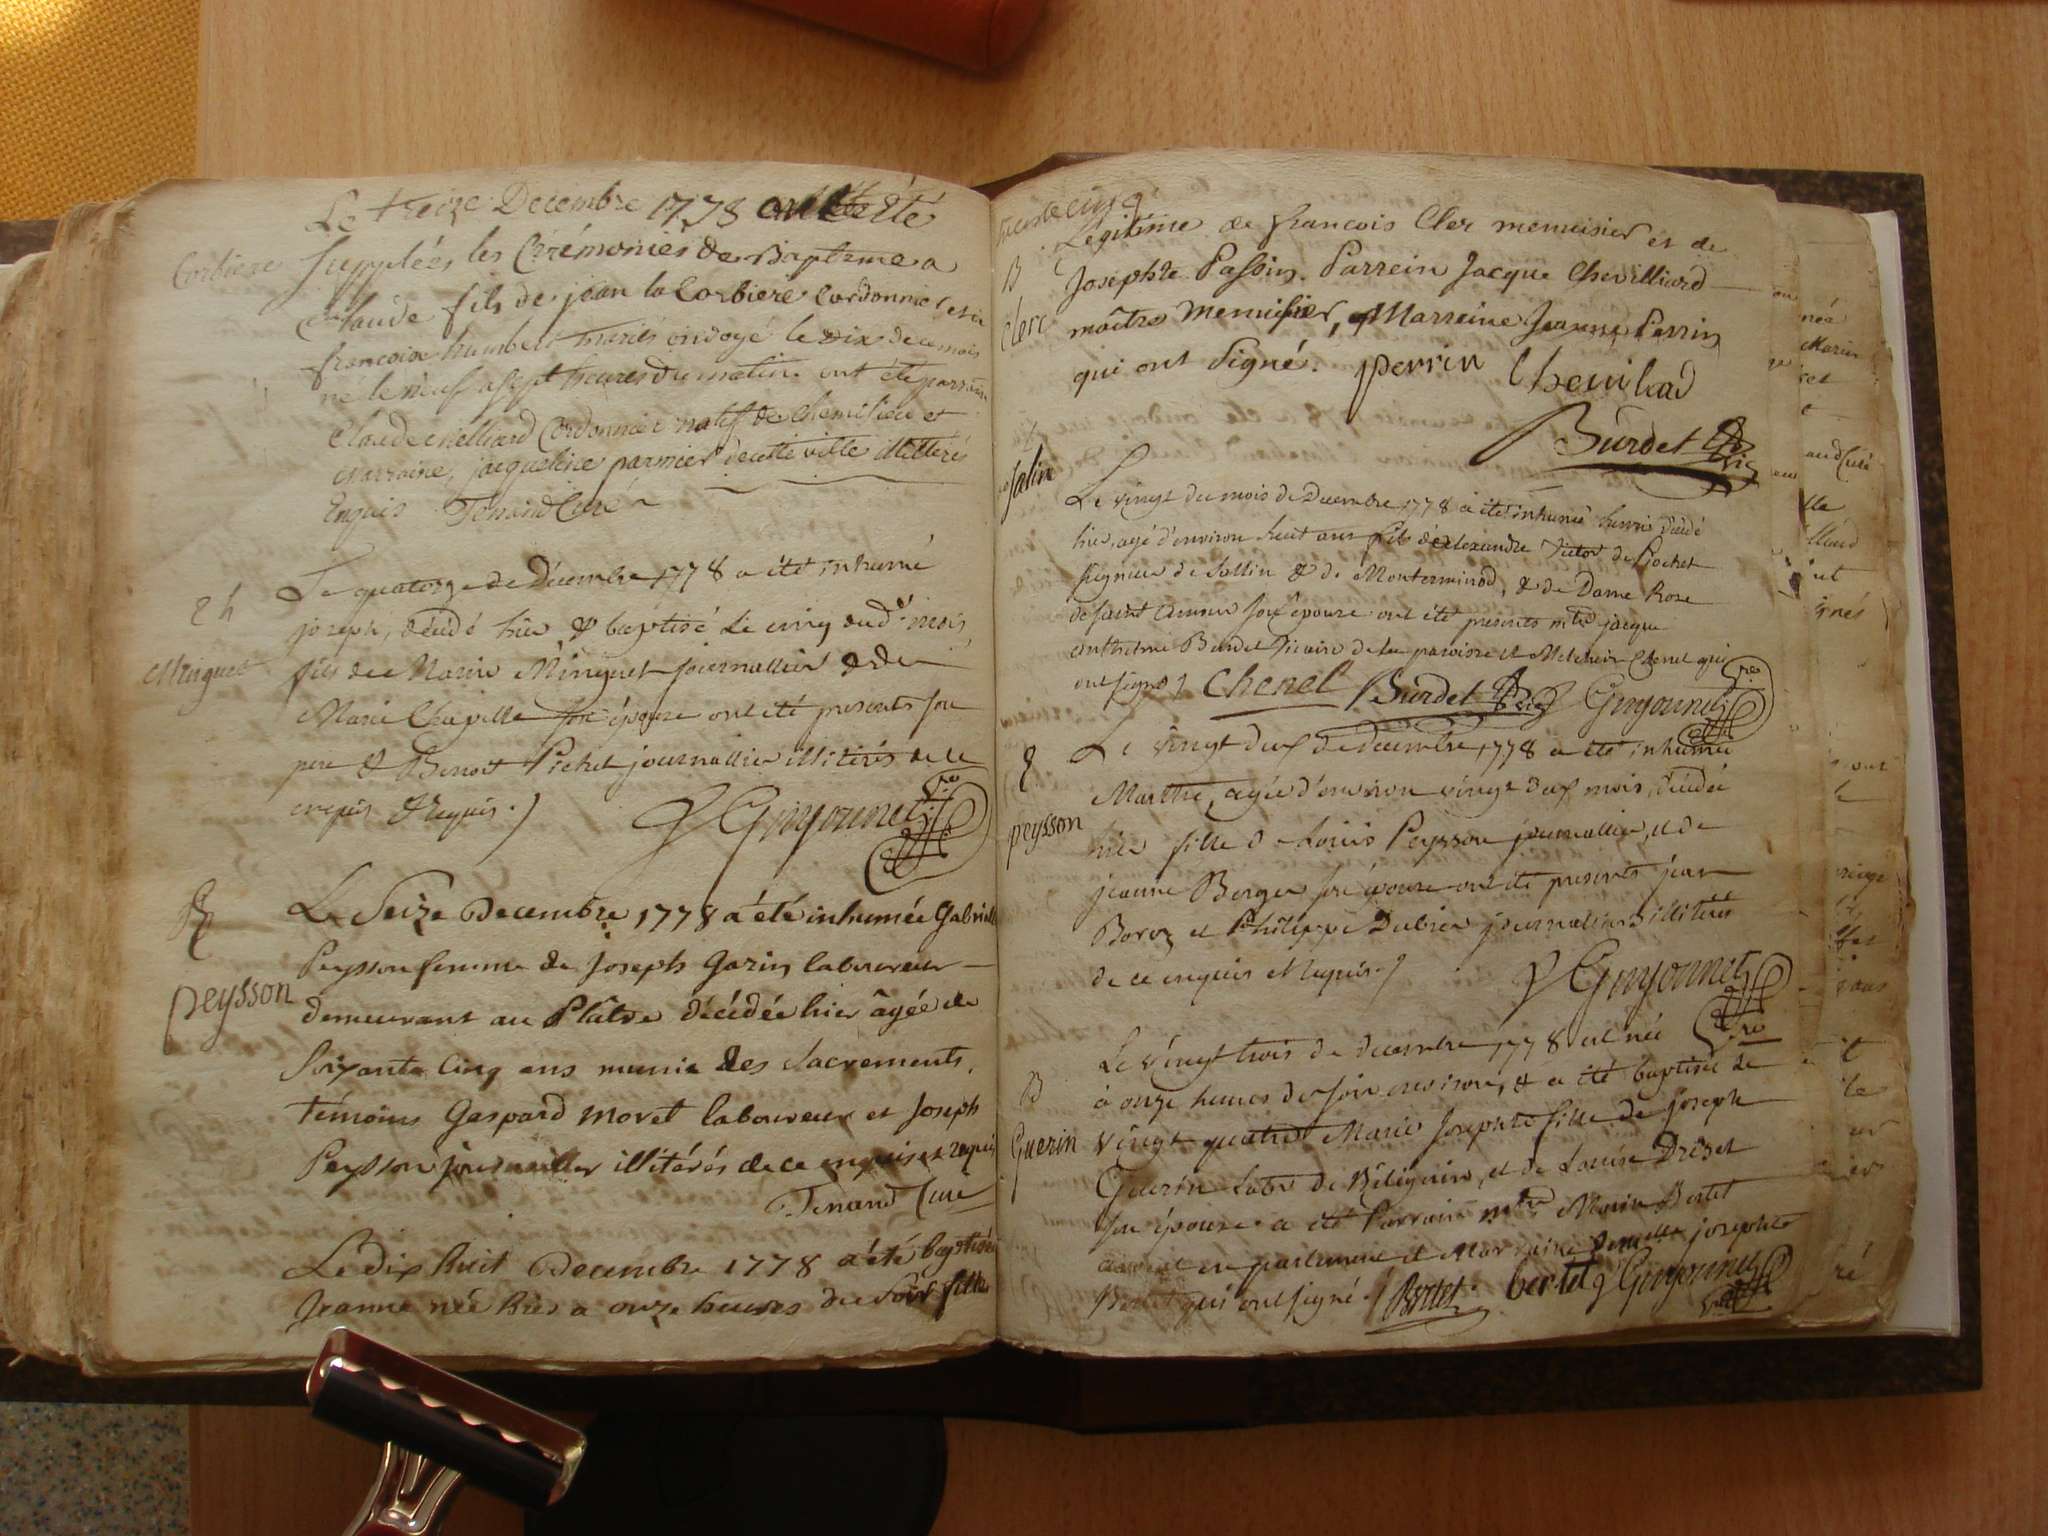 Le treize Decembre 1778 ont été
Corbiere
Suppléés les Cérémonies de Bapteme a
Claude fils de jean la Corbiere Cordonnier et de
francoise humbert mariés ondoyé le dix de ce mois
né le neuf a sept heures du matin ont été parrain
Claude Cordonnier natif de Chemilieu et
Marraine jacqueline parmier de cette ville illitterés
Enquis Tenand Curé
Le quatorze de Décembre 1778 a été inhumé
joseph, décédé hier & baptisé le cinq dud. mois
Minguet
fils de Marin Minguet journallier & de
Marie Chapelle son épouse ont été presents son
pere & Benoit Pichet journallier illiterés de ce
enquis & requis
Guyonnet
Le Seize Decembre 1778 a été inhumée Gabrielle
Peysson femme de Joseph Garin laboureur
peysson
demeurant au Plâtre décédée hier âgée de
Soixante Cinq ans munie des Sacrements.
témoins Gaspard Moret laboureur et Joseph
Peysson journallier illitérés de ce enquis et requis
Tenand Curé
Le dix huit Decembre 1778 a été baptisée
Jeanne née hier a onze heures du Soir fille
Légitime de francois Cler menuisier et de
B
Josephte Passin. Parrein Jacque Chevilliard
Clerc
maître Menuisier, et Marreine Jeanne Perrin
qui ont Signé. perrin Cheuilard
Burdet
Salin
Le vingt du mois de Decembre 1778 a été inhumé henri décédé
hier, agé d'environ huit ans fils d'Alexandre Victor de Piochet
seigneur de Sallin & de Monterminod, & de Dame Rose
de Saint Amour son épouse ont été présents mtre jacque
Anthelme Burdet Vicaire de la paroisse et Melchior Chenel qui
ont signé Chenel Burdet Guyonnet
Le vingt deux de decembre 1778 a été inhumée
Marthe, agée d'environ vingt deux mois, décédée
peysson
hier fille de Louis Peysson journallier, et de
jeanne Berger son épouse ont été presents jean
Boroz et Philippe Dubier journalliers illiterés
de ce enquis et requis
Guyonnet
Le vingt trois de decembre 1778 est née
B
à onze heures du soir environ, & a été baptisée le
Guerin
vingt quatre Marie Josephte fille de joseph
Guerin de et de Louise Drevet
son épouse a été Parrain mtre Marin Bertet
avocat en parlement et Marraine demelle josephte
Bertet qui ont signé Bertet bertet Guyonnet